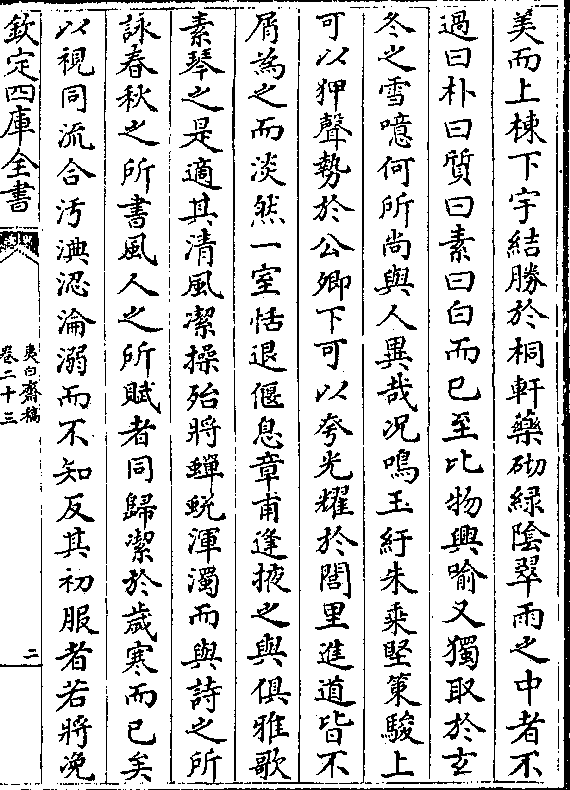 美而上棟下宇結勝於桐軒藥砌緑陰翠雨之中者不
過曰朴曰質曰素曰白而已至比物興喻又獨取於玄
冬之雪噫何所尚與人異哉况鳴玉紆朱乘堅策駿上
可以狎聲勢於公卿下可以夸光耀於閭里進道皆不
屑為之而淡然一室恬退偃息章甫逢掖之與俱雅歌
素琴之是適其清風潔操殆將蟬蛻渾濁而與詩之所
詠春秋之所書風人之所賦者同歸潔於歲寒而已矣
以視同流合汚淟涊淪溺而不知反其初服者若將浼
欽定四庫全書
夷白齋稿
卷二十三
二